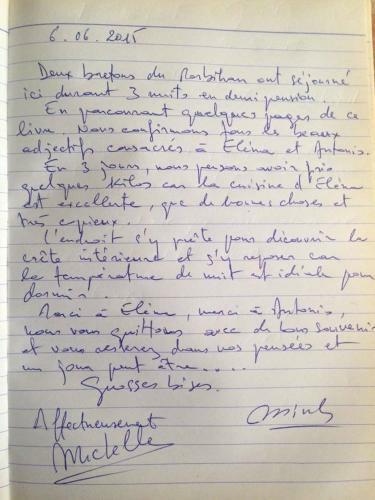 6.06.2015
Deux bretons du Morbihan ont séjourné
ici durant 3 nuits en demi pension.
En parcourant quelques pages de ce
livre. Nous confirmons tous les beaux
adjectifs consacrés à Eléna et Antonio.
En 3 jours, nous pensons avoir pris
quelques kilos car la cuisine d'Eléna
est excellente, que de bonnes choses et
très copieux.
L'endroit s'y prête pour découvrir la
crète intérieure et s'y reposer car
la température de nuit est idéale pour
dormir...
Merci à Eléna, merci à Antonio,
nous vous quittons avec de bons souvenirs
et vous resterez dans nos pensées et
un jour peut être....
Grosses bises.
Affectueusement
Michelle